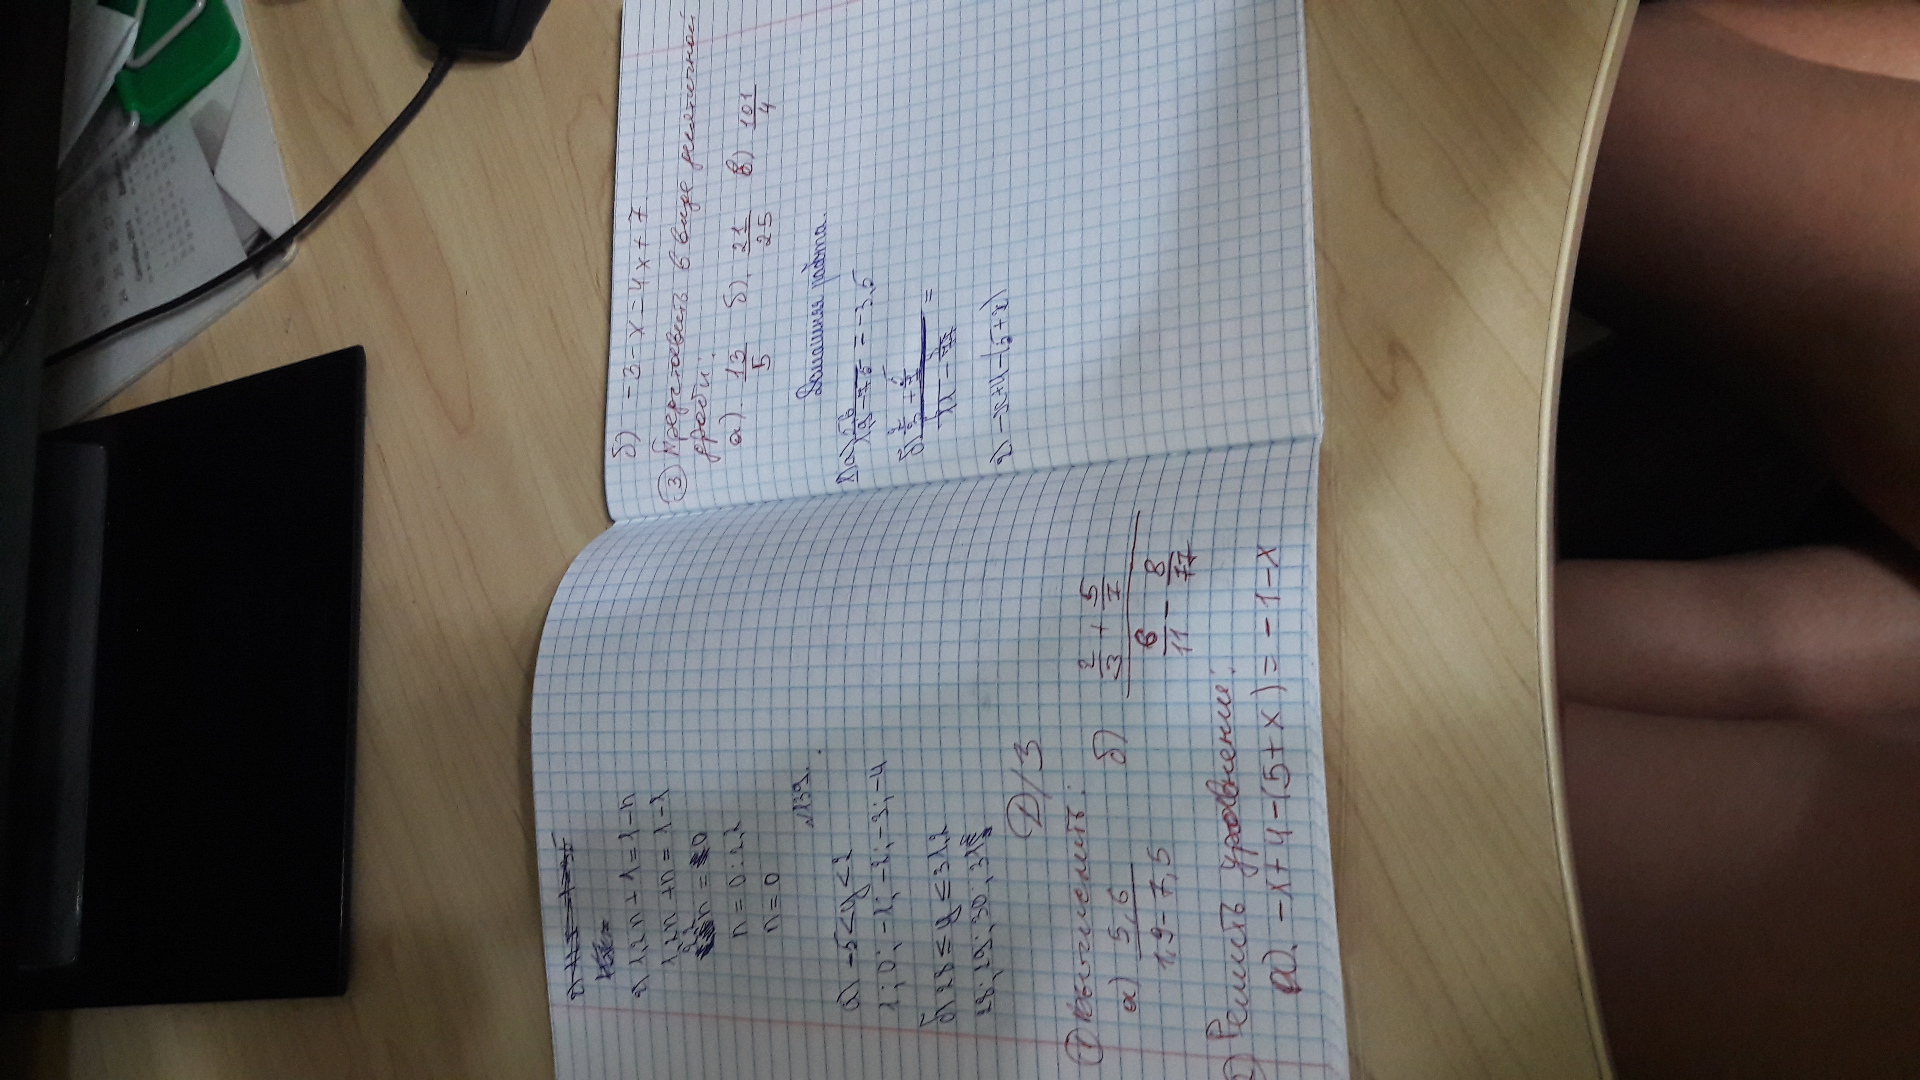 г) 1,2n + 1 = 1 - n
1,2n + n = 1 - 1
n = 0
n = 0 : 2,2
n = 0
№139.
а) -5 < y < 2
1; 0; -1; -2; -3; -4
б) 28 ≤ y ≤ 31,2
28; 29; 30; 31
Д/З
① Вычислить:
а) 5,6 / 1,9 - 7,5 б) 2/3 + 5/7 / 6/11 - 8/77
Решить уравнение:
а). -x + 4 - (5 + x) = -1 - x
б) -3 - x = 4x + 7
③ Представить в виде десятичной
дроби:
а). 13/5 б). 21/25 в) 101/4
Домашняя работа.
1) а) 5,6 / 1,9 - 7,5 = -3,5
б)
2) -x + 4 - (5 + x)